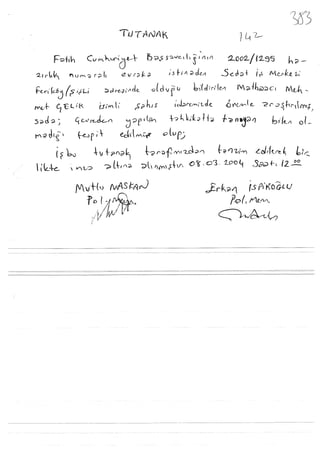 383
TUTANAK
142
Fatih Cumhuriyet Bassavcılığının 2002/1295 ha-
zırlık numaralı evraka istinaden Sedat iş Merkezi
Feriköy/Şişli adresinde olduğu bildirilen Matbaacı Meh-
met ÇELİK isimli şahıs idaremizde önemle araştırılmış,
sada; Çevreden yapılan tahkikatta tanıyan bilen ol-
madığı tespit edilmiş olup;
iş bu tutanak tarafımızdan tanzim edilerek bir
likte imza altına alınmıştır. 08.03.2004 Saat: 12 00
Mutlu NASKAN Erkan İSAKOĞLU
Pol. Mem. Pol. Mem.